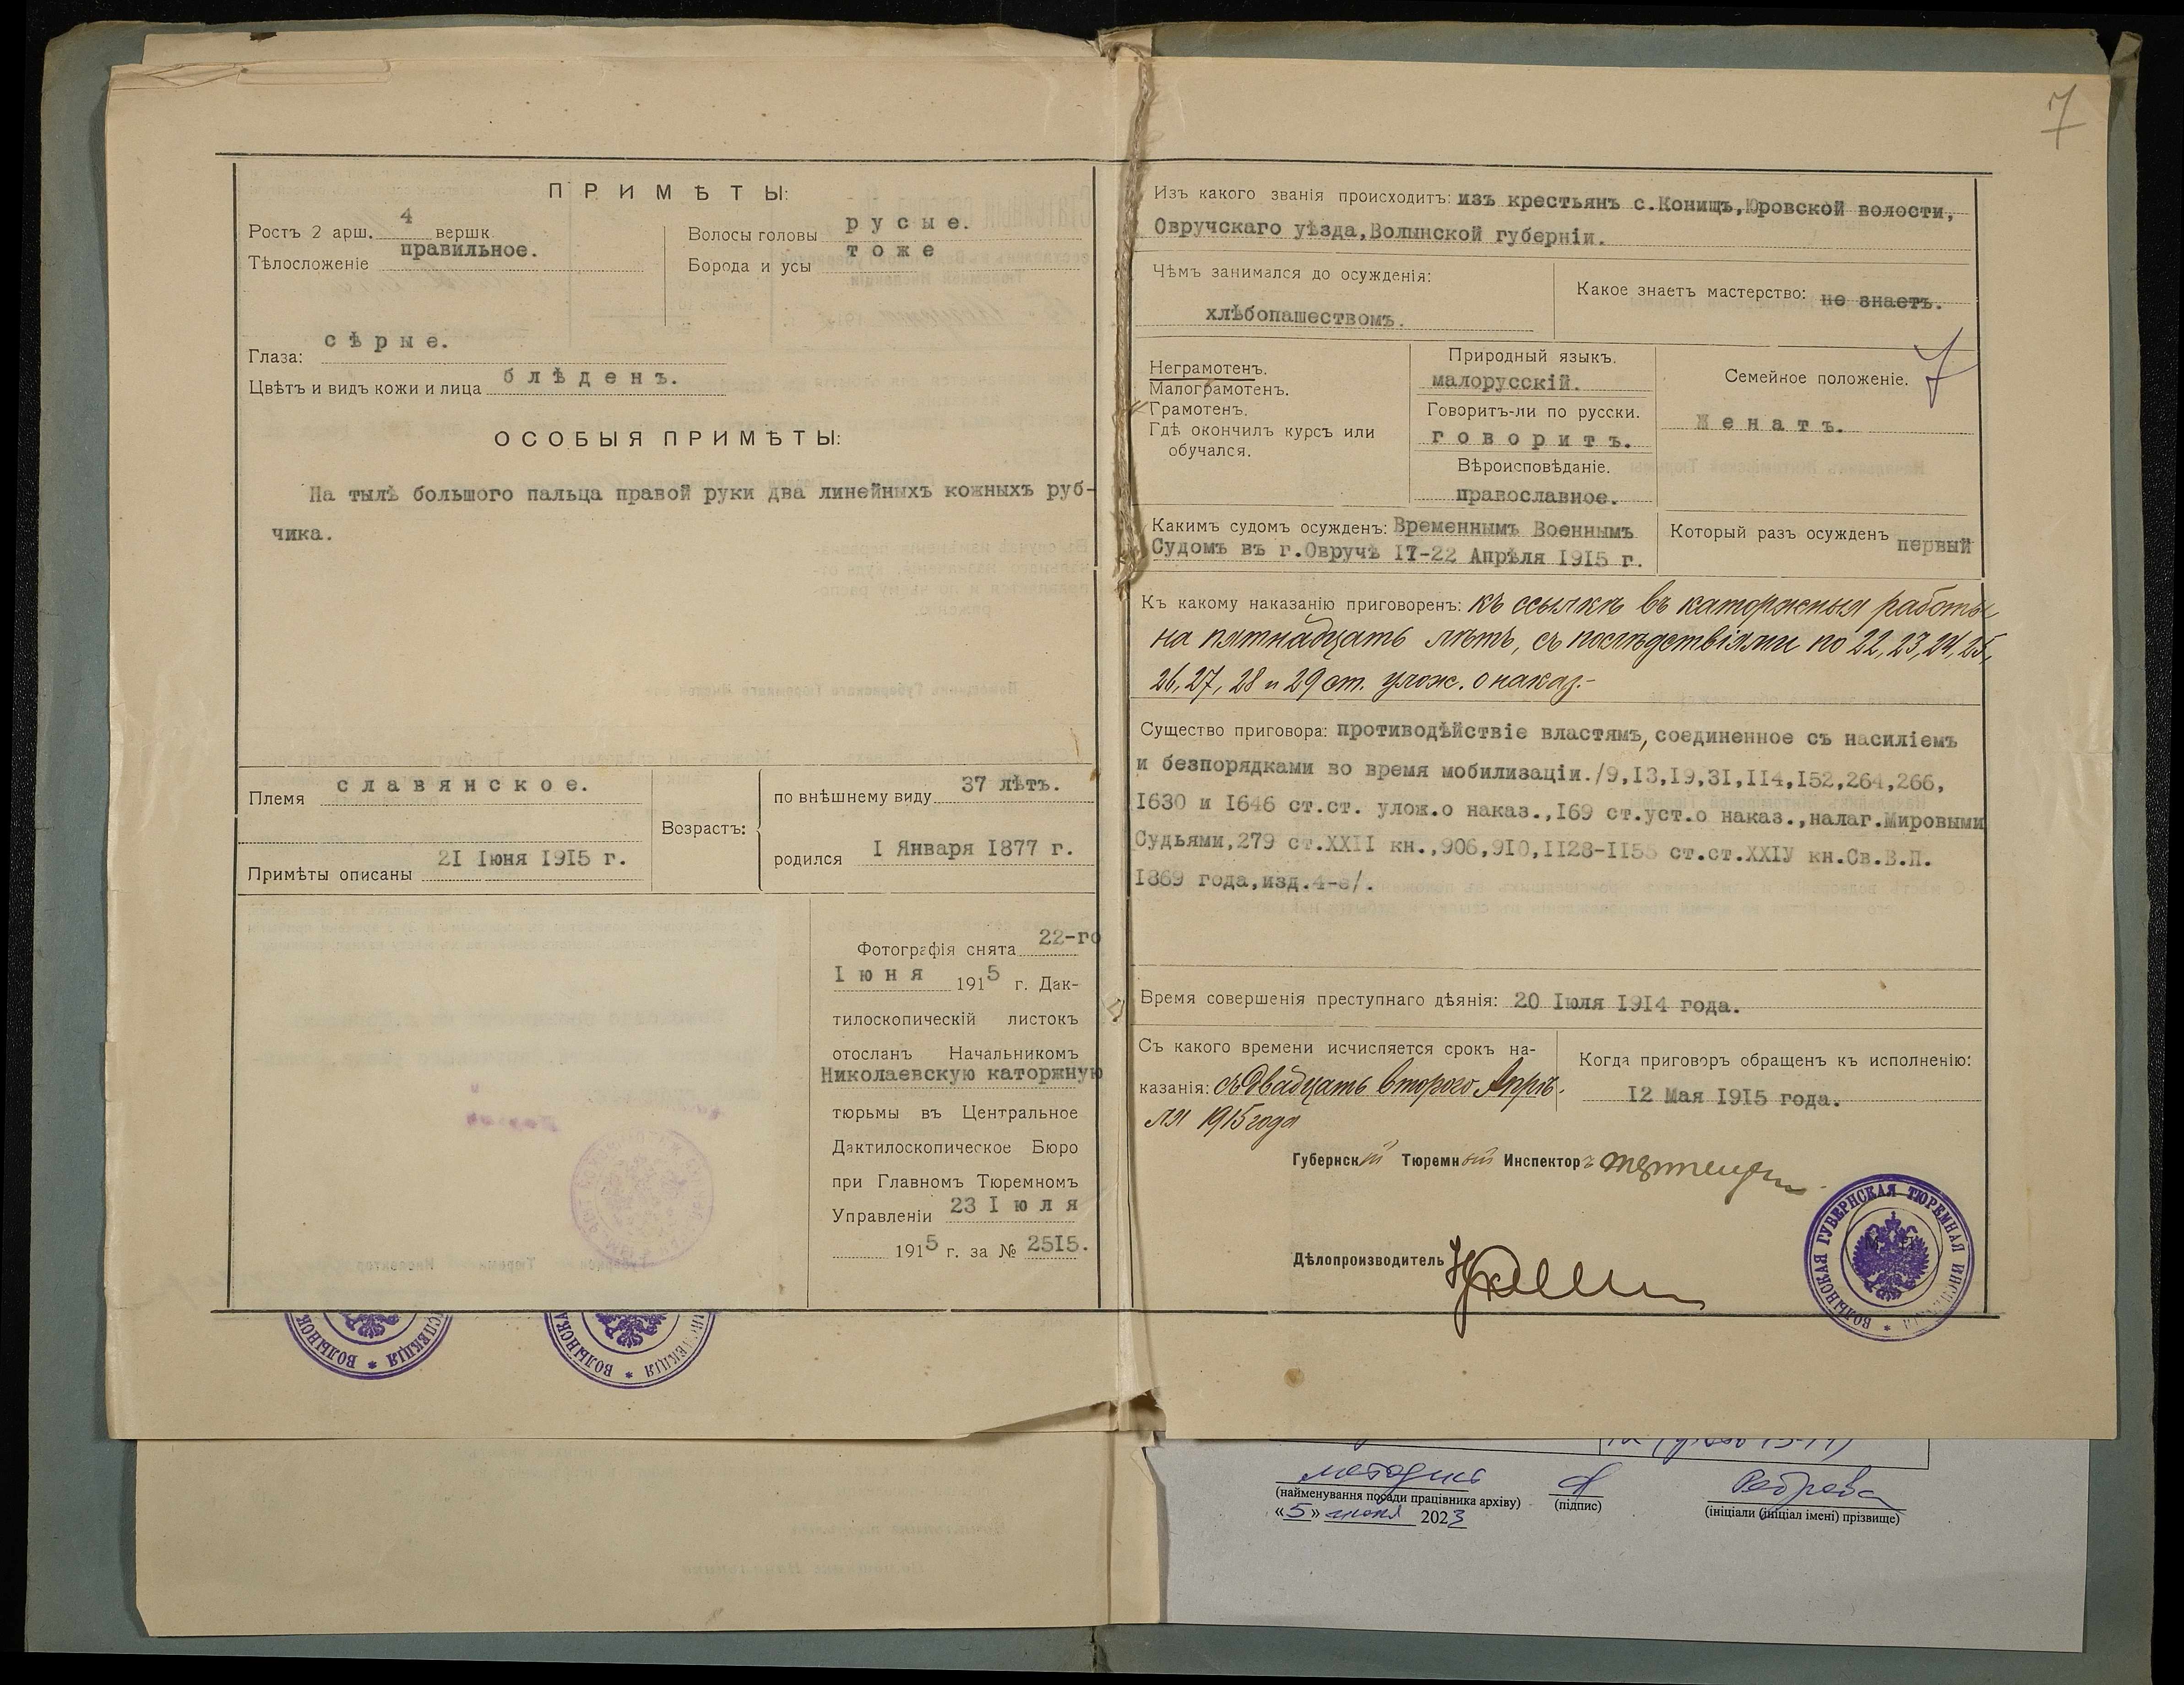 7
ПРИМѢТЫ:
Ростъ 2 арш. 4 вершк
Тѣлосложеніе правильное.
Волосы головы русые.
Борода и усы тоже
Глаза: сѣрые.
Цвѣтъ и видъ кожи и лица блѣденъ.
ОСОБЫЯ ПРИМѢТЫ:
На тылѣ большого пальца правой руки два линейныхъ кожныхъ руб-
чика.
Племя славянское.
Примѣты описаны 21 Іюня 1915 г.
Возрастъ:
по внѣшнему виду 37 лѣтъ.
родился I Января 1877 г.
Фотографія снята 22-го
Іюня 1915 г. Дак-
тилоскопическій листокъ
отосланъ Начальникомъ
Николаевскую каторжную
тюрьмы въ Центральное
Дактилоскопическое Бюро
при Главномъ Тюремномъ
Управленіи 23 Іюля
1915 г. за № 2515.
Изъ какого званія происходитъ: изъ крестьянъ с.Конищъ,Юровской волости,
Овручскаго уѣзда,Волынской губерніи.
Чѣмъ занимался до осужденія:
хлѣбопашествомъ.
Какое знаетъ мастерство: не знаетъ.
Неграмотенъ.
Малограмотенъ.
Грамотенъ.
Гдѣ окончилъ курсъ или
обучался.
Природный языкъ.
малорусскій.
Говоритъ-ли по русски.
говоритъ.
Вѣроисповѣданіе.
православное.
Семейное положеніе. 7
Женатъ.
Какимъ судомъ осужденъ: Временнымъ Военнымъ
Судомъ въ г.Овручѣ 17-22 Апрѣля 1915 г.
Который разъ осужденъ первый
Къ какому наказанію приговоренъ: къ ссылкѣ въ каторжныя работы
на пятнадцать лѣтъ, съ послѣдствіями по 22, 23, 24, 25,
26, 27, 28 и 29 ст. улож. о наказ.-
Существо приговора: противодѣйствіе властямъ, соединенное съ насиліемъ
и безпорядками во время мобилизаціи./9,13,19,31,114,152,264,266,
1630 и 1646 ст.ст. улож.о наказ.,169 ст.уст.о наказ.,налаг.Мировыми
Судьями,279 ст.XXII кн.,906,910,1128-1155 ст.ст.XXIУ кн.Св.В.П.
1869 года,изд.4-е/.
Время совершенія преступнаго дѣянія: 20 Іюля 1914 года.
Съ какого времени исчисляется срокъ на-
казанія: съ двадцать второго Апрѣ-
ля 1915 года
Когда приговоръ обращенъ къ исполненію:
12 Мая 1915 года.
Губернскій Тюремный Инспекторъ
Дѣлопроизводитель
ВОЛЫНСКАЯ ГУБЕРНСКАЯ ТЮРЕМНАЯ ИНСПЕКЦІЯ *
М. П.
методист
(найменування посади працівника архіву)
(підпис)
(ініціали (ініціал імені) прізвище)
«5» 2023